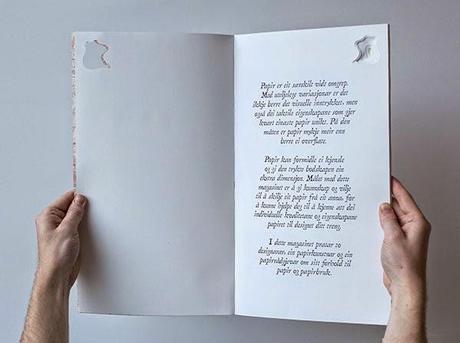 Papir er eit særskilt vidt omgrep.
Med uteljelege variasjonar er det
ikkje berre det visuelle inntrykket, men
også dei taktile eigenskapane som gjer
kvart einaste papir unikt. På den
måten er papir mykje meir enn
berre ei overflate.
Papir kan formidle ei kjensle
og gi den trykte bodskapen ein
ekstra dimensjon. Målet med dette
magasinet er å gi kunnskap og vilje
til å skilje eit papir frå eit anna, for
å kunne hjelpe deg til å kjenne att dei
individuelle kvalitetane og eigenskapane
papiret til designet ditt treng.
I dette magasinet pratar 10
designarar, ein papirkunstnar og ein
papirrådgjevar om sitt forhold til
papir og papirbruk.